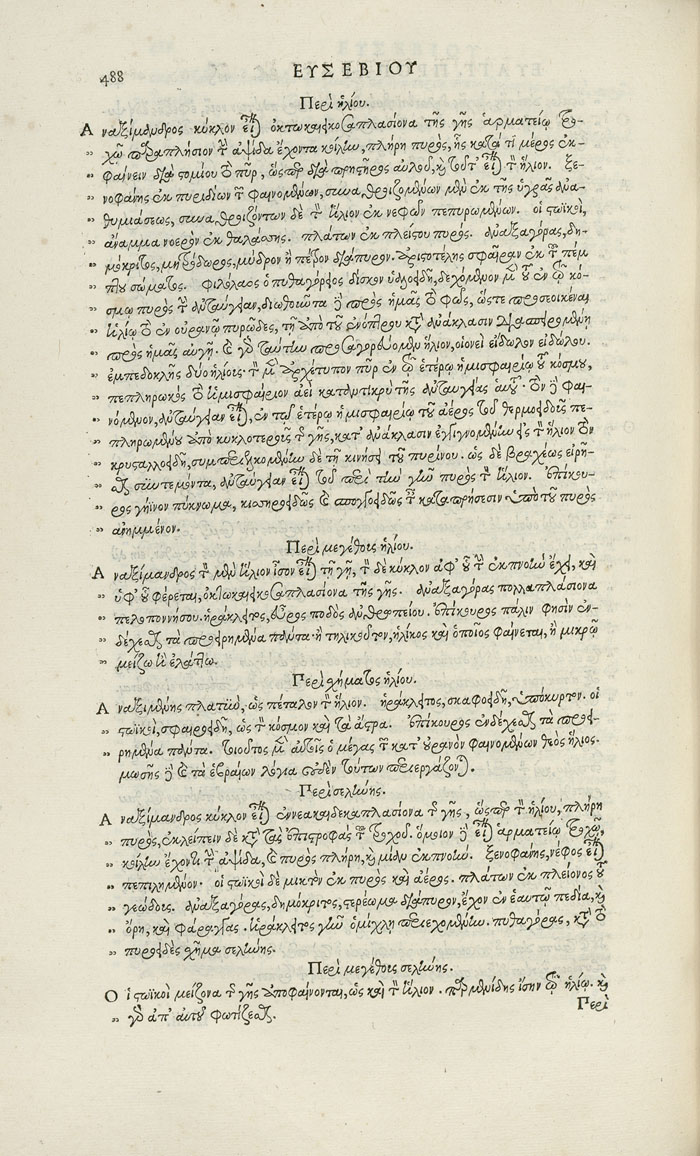 488 ΕΥΣΕΒΙΟΥ
Περὶ ἡλίου.
Ἀναξίμανδρος κύκλον εἶναι ὀκτωκαιεικοσαπλασίονα τῆς γῆς ἁρματείῳ τρο-
χῷ παραπλήσιον τὴν ἀψῖδα ἔχοντα κοίλην, πλήρη πυρὸς, ἧς κατά τι μέρος ἐκ-
φαίνειν διὰ στομίου τὸ πῦρ, ὥσπερ διὰ πρηστῆρος αὐλοῦ, καὶ τοῦτ' εἶναι τὸν ἥλιον. ξε-
νοφάνης ἐκ πυριδίων τῶν φαινομένων, συναθροιζομένων μὲν ἐκ τῆς ὑγρᾶς ἀνα-
θυμιάσεως, συναθροιζόντων δὲ τὸν ἥλιον ἐκ νεφῶν πεπυρωμένων. οἱ στωϊκοὶ,
ἄναμμα νοερὸν ἐκ θαλάσσης. πλάτων ἐκ πλείστου πυρός. ἀναξαγόρας, δη-
μόκριτος, μητρόδωρος, μύδρον ἢ πέτρον διάπυρον. ἀριστοτέλης σφαῖραν ἐκ τοῦ πέμ
πτου σώματος. φιλόλαος ὁ πυθαγόρειος δίσκον ὑαλοειδῆ, δεχόμενον μὲν τοῦ ἐν τῷ κό-
σμῳ πυρὸς τὴν ἀνταύγειαν, διωθοῦντα δὲ πρὸς ἡμᾶς τὸ φῶς, ὥστε προσεοικέναι
ἡλίῳ τὸ ἐν οὐρανῷ πυρῶδες, τῇ ἀπὸ τοῦ ἐνόπτρου κατ' ἀνάκλασιν διασπειρομένη
πρὸς ἡμᾶς αὐγῆ. καὶ γὰρ ταύτην προσαγορεύομεν ἥλιον, οἱονεὶ εἴδωλον εἰδώλου.
ἐμπεδοκλῆς δύο ἡλίους· τὸν μὲν ἀρχέτυπον πῦρ ἐν τῷ ἑτέρῳ ἡμισφαιρίῳ τοῦ κόσμου,
πεπληρωκὸς τὸ ἡμισφαίριον ἀεὶ καταντικρὺ τῆς ἀνταυγείας αὑτοῦ· τὸν δὲ φαι-
νόμενον, ἀνταύγειαν εἶναι, ἐν τῷ ἑτέρῳ ἡμισφαιρίῳ τοῦ ἀέρος τοῦ θερμοειδοῦς πε-
πληρωμένου ἀπὸ κυκλοτεροῦς τῆς γῆς, κατ' ἀνάκλασιν ἐγγιγνομένην εἰς τὸν ἥλιον τὸν
κρυσταλλοειδῆ, συμπεριελκομένην δὲ τῇ κινήσει τοῦ πυρίνου. ὡς δὲ βραχέως εἰρῆ-
σθαι συντεμόντα, ἀνταύγειαν εἶναι τοῦ περὶ τὴν γῆν πυρὸς τὸν ἥλιον. ἐπίκου-
ρος γήϊνον πύκνωμα, κισσηροειδῶς καὶ σπογγοειδῶς ταῖς κατατρήσεσιν ὑπὸ τοῦ πυρὸς
ἀνημμένον.
Περὶ μεγέθους ἡλίου.
Ἀναξίμανδρος τὸν μὲν ἥλιον ἴσον εἶναι τῇ γῇ, τὸν δὲ κύκλον ἀφ' οὗ τὴν ἐκπνοὴν ἔχει, καὶ
ὑφ' οὗ φέρεται, ὀκτωκαιεικοσαπλασίονα τῆς γῆς. ἀναξαγόρας πολλαπλάσιονα
πελοποννήσου. ἡράκλειτος, εὖρος ποδὸς ἀνθρωπείου. ἐπίκουρος πάλιν φησὶν ἐν-
δέχεσθαι τὰ προειρημένα πάντα· ἢ τηλικοῦτον, ἡλίκος καὶ ὁποῖος φαίνεται, ἢ μικρῷ
μείζω ἢ ἐλάττω.
Περὶ σχήματος ἡλίου.
Ἀναξιμένης πλατὺν, ὡς πέταλον τὸν ἥλιον. ἡράκλειτος, σκαφοειδῆ, ὑπόκυρτον. οἱ
στωϊκοὶ, σφαιροειδῆ, ὡς τὸν κόσμον καὶ τὰ ἄστρα. ἐπίκουρος ἐνδέχεσθαι τὰ προει-
ρημένα πάντα. τοιοῦτος μὲν αὐτοῖς ὁ μέγας τῶν κατ' οὐρανὸν φαινομένων θεὸς ἥλιος.
μωσῆς δὲ καὶ τὰ ἑβραίων λόγια οὐδὲν τούτων περιεργάζονται.
Περὶ σελήνης.
Ἀναξίμανδρος κύκλον εἶναι ἐννεακαιδεκαπλασίονα τῆς γῆς, ὥσπερ τὸν ἡλίου, πλήρη
πυρὸς, ἐκλείπειν δὲ κατὰ τὰς ἐπιστροφὰς τοῦ τροχοῦ. ὅμοιον δὲ εἶναι ἁρματείῳ τροχῷ,
κοίλην ἔχοντι τὴν ἀψῖδα, καὶ πυρὸς πλήρη, καὶ μίαν ἐκπνοήν. ξενοφάνης, νέφος εἶναι
πεπιλημένον. οἱ στωϊκοὶ δὲ μικτὴν ἐκ πυρὸς καὶ ἀέρος. πλάτων ἐκ πλείονος τοῦ
γεώδους. ἀναξαγόρας, δημόκριτος, στερέωμα διάπυρον, ἔχον ἐν ἑαυτῷ πεδία, καὶ
ὄρη, καὶ φάραγγας. ἡράκλειτος γῆν ὁμίχλῃ περιεχομένην. πυθαγόρας, κατὰ τὸ
πυροειδὲς σχῆμα σελήνης.
Περὶ μεγέθους σελήνης.
Οἱ στωϊκοὶ μείζονα τῆς γῆς ἀποφαίνονται, ὡς καὶ τὸν ἥλιον. παρμενίδης ἴσην τῷ ἡλίῳ. καὶ
γὰρ ἀπ' αὐτοῦ φωτίζεσθαι.
Περὶ